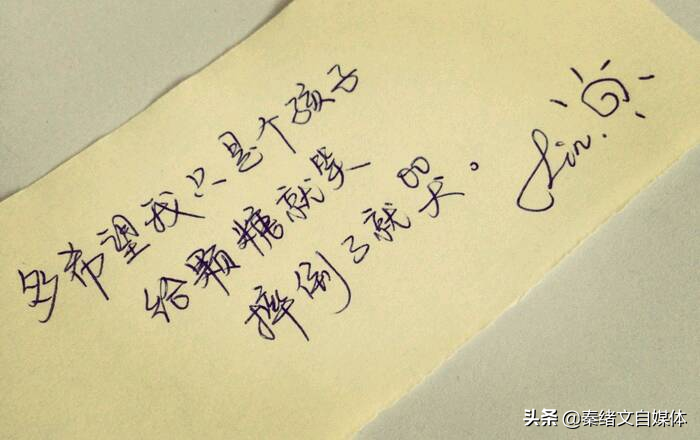 多希望我只是个孩子
给颗糖就笑
摔倒了就哭。
Lin.
头条 @秦绪文自媒体